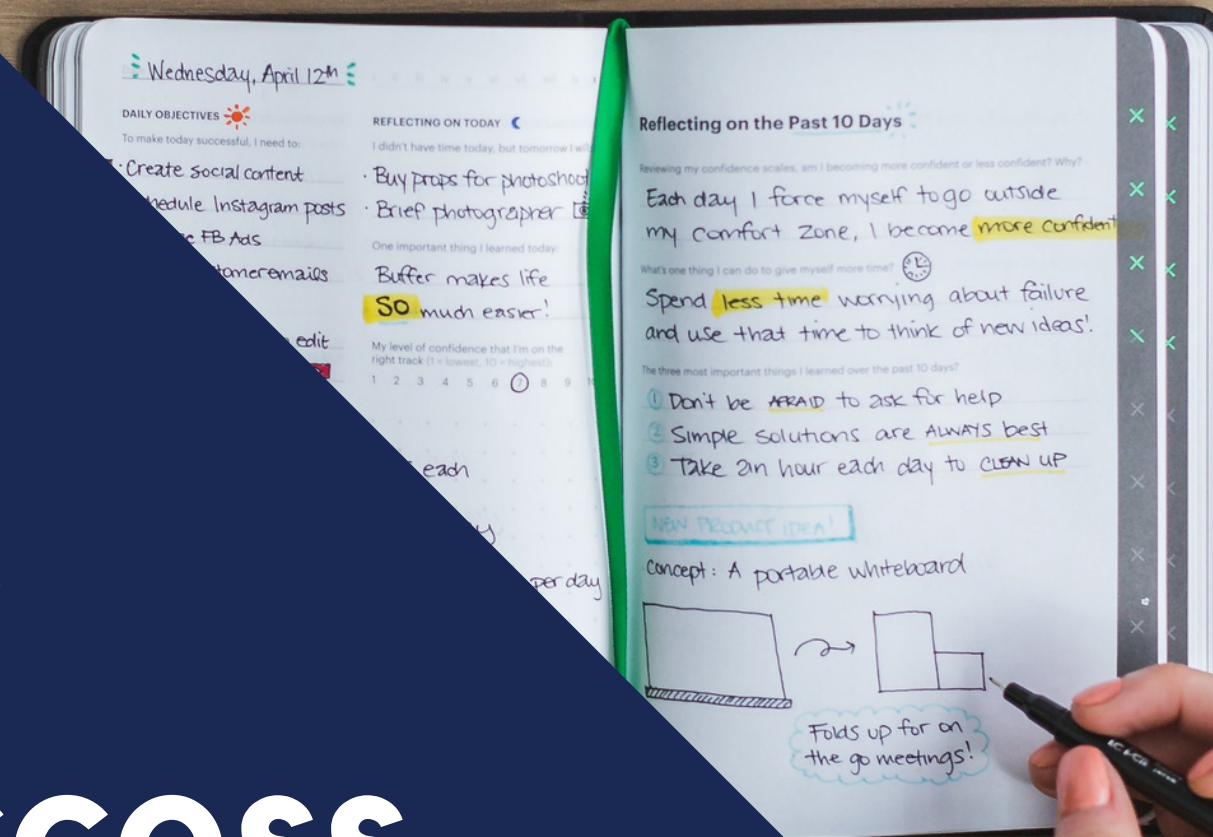 Wednesday, April 12th
DAILY OBJECTIVES
To make today successful, I need to:
· Create social content
hedule Instagram posts
FB Ads
tomer emails
edit
each
per day
REFLECTING ON TODAY
I didn't have time today, but tomorrow I will
· Buy props for photoshoot
· Brief photographer
One important thing I learned today:
Buffer makes life
SO much easier!
My level of confidence that I'm on the
right track (1 = lowest, 10 = highest):
1 2 3 4 5 6 7 8 9
Reflecting on the Past 10 Days
Reviewing my confidence scales, am I becoming more confident or less confident? Why?
Each day I force myself to go outside
my comfort zone, I become more confident
What's one thing I can do to give myself more time?
Spend less time worrying about failure
and use that time to think of new ideas!
The three most important things I learned over the past 10 days?
1 Don't be AFRAID to ask for help
2 Simple solutions are ALWAYS best
3 Take an hour each day to CLEAN UP
NEW PRODUCT IDEA!
Concept: A portable whiteboard
Folds up for on
the go meetings!